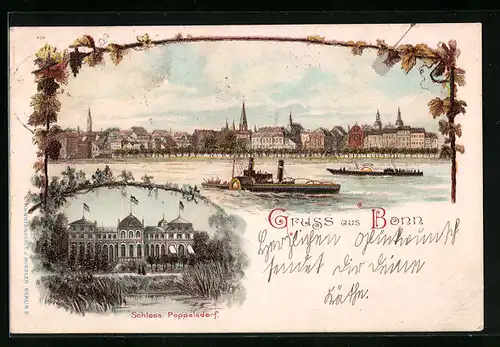 Gruss aus Bonn
Herzlichen Glückwunsch
sendet Dir Deine
Käthe.
Schloss Poppelsdorf.